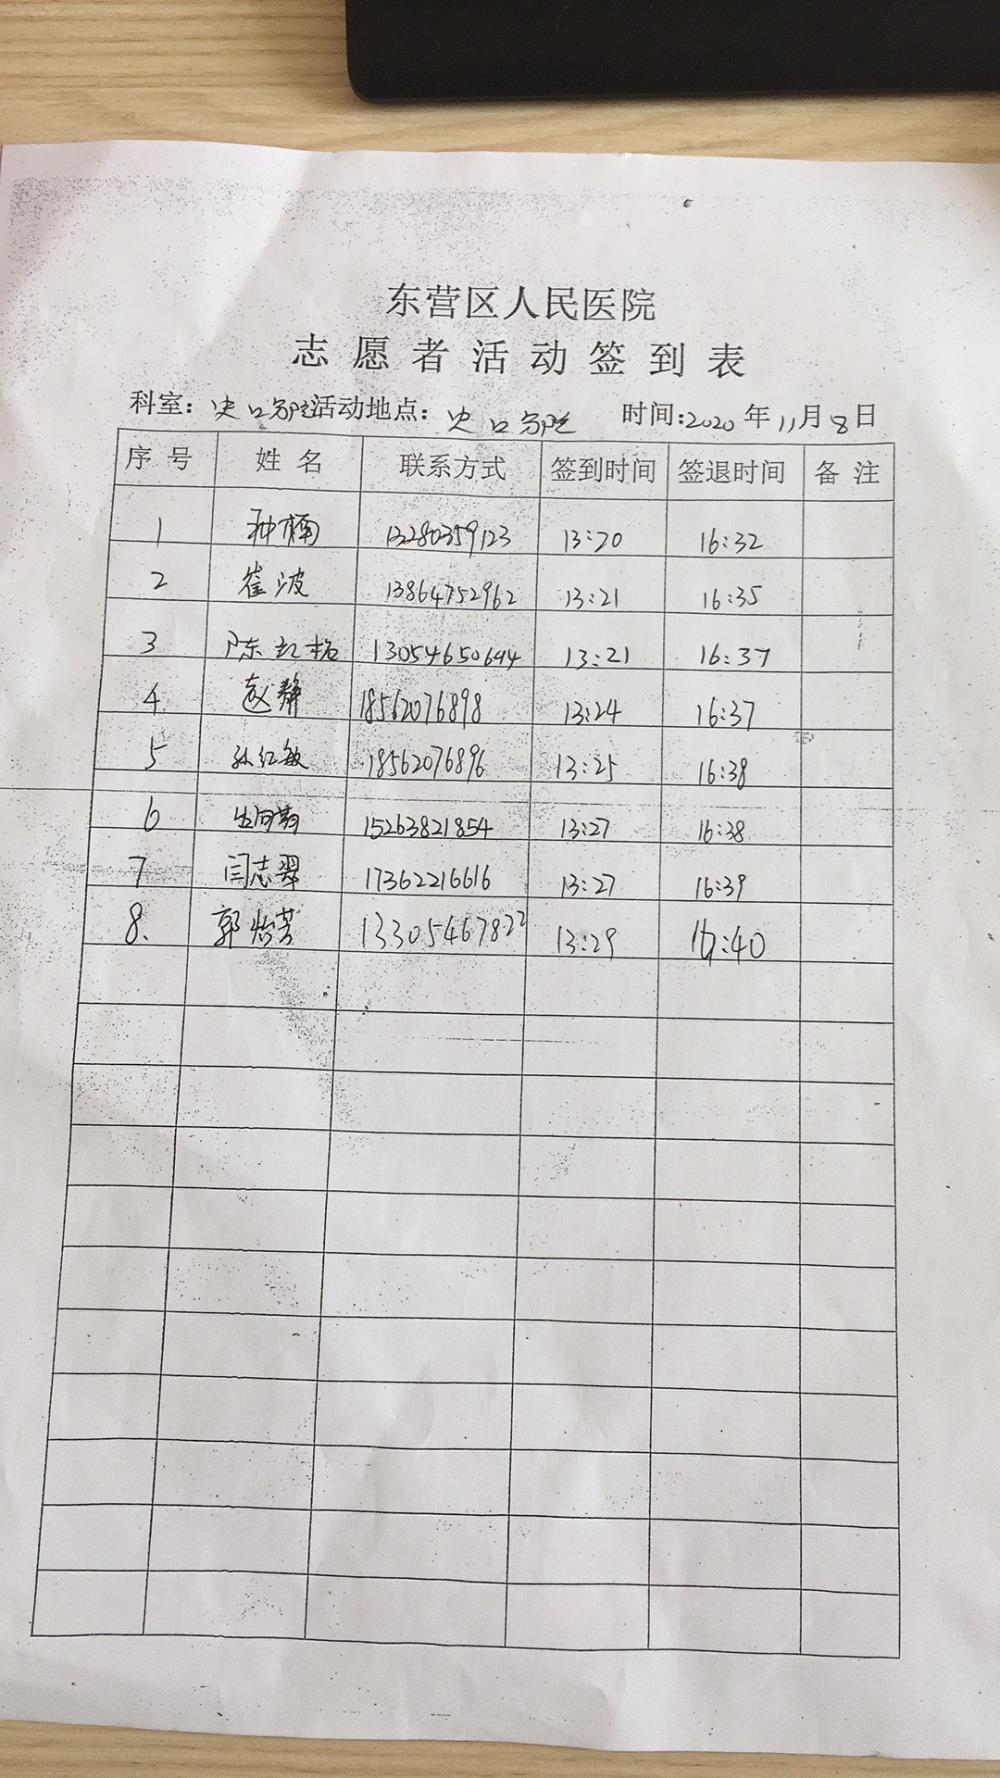 东营区人民医院
志愿者活动签到表
科室：史口分院 活动地点：史口分院 时间：2020年11月8日
序号 姓名 联系方式 签到时间 签退时间 备注
1 种楠 13280359123 13:20 16:32
2 崔波 13864752962 13:21 16:35
3 陈 13054650644 13:21 16:37
4 赵静 18562076898 13:24 16:37
5 孙红敏 18562076896 13:25 16:38
6 15263821854 13:27 16:38
7 闫志翠 17362216616 13:27 16:39
8. 郭怡芳 13305467822 13:29 16:40